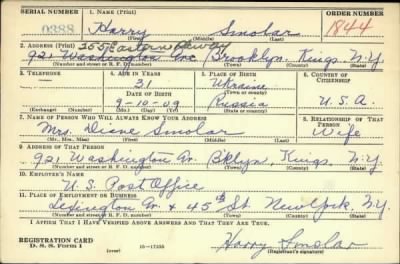 SERIAL NUMBER 1. NAME (Print) ORDER NUMBER
0388 Harry Smolar 1844
(First) (Middle) (Last)
2. ADDRESS (Print) 255 Eastern Pkwy
921 Washington Ave. Brooklyn, Kings, N.Y.
(Number and street or R. F. D. number) (Town) (County) (State)
3. TELEPHONE 4. AGE IN YEARS 5. PLACE OF BIRTH 6. COUNTRY OF CITIZENSHIP
31 Ukraine
DATE OF BIRTH (Town or county)
9-10-09 Russia U.S.A.
(Exchange) (Number) (Mo.) (Day) (Yr.) (State or country)
7. NAME OF PERSON WHO WILL ALWAYS KNOW YOUR ADDRESS 8. RELATIONSHIP OF THAT PERSON
Mrs. Diane Smolar Wife
(Mr., Mrs., Miss) (First) (Middle) (Last)
9. ADDRESS OF THAT PERSON
921 Washington Av. Bklyn, Kings, N.Y.
(Number and street or R. F. D. number) (Town) (County) (State)
10. EMPLOYER'S NAME
U.S. Post Office
11. PLACE OF EMPLOYMENT OR BUSINESS
Lexington Av. & 45th St. New York, N.Y.
(Number and street or R. F. D. number) (Town) (County) (State)
I AFFIRM THAT I HAVE VERIFIED ABOVE ANSWERS AND THAT THEY ARE TRUE.
REGISTRATION CARD
D. S. S. Form 1 (over) 16-17105 Harry Smolar
(Registrant's signature)